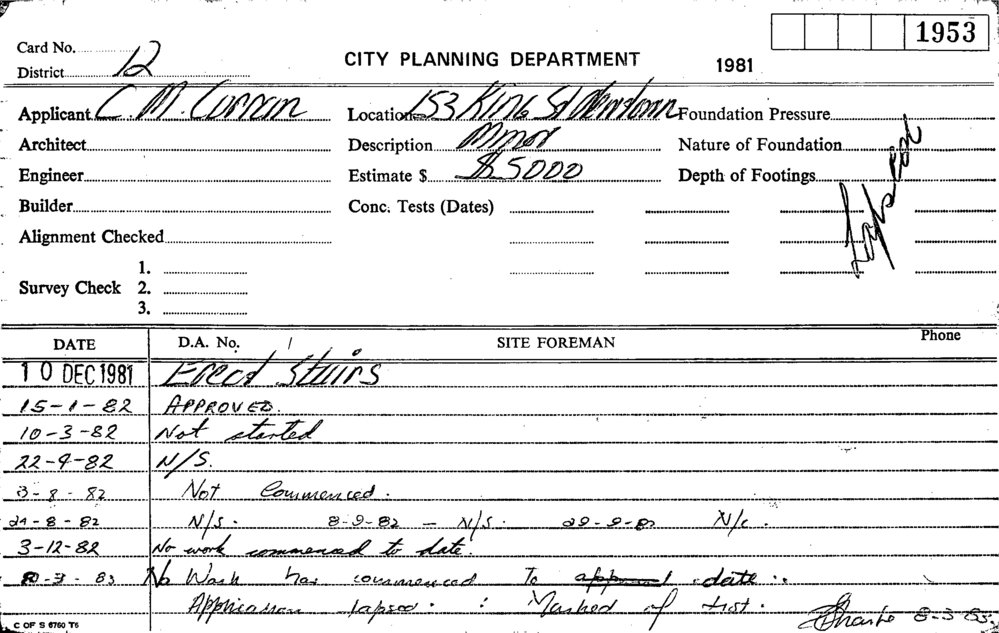 1953
Card No.
District 12
CITY PLANNING DEPARTMENT
1981
Applicant C. M. Curran
Location 153 King St
Foundation Pressure
Architect
Description Minor
Nature of Foundation
Engineer
Estimate $ $5000
Depth of Footings
Builder
Conc. Tests (Dates)
Lapsed
Alignment Checked
Survey Check 1.
2.
3.
DATE D.A. No. SITE FOREMAN Phone
10 DEC 1981 Erect Stairs
15-1-82 APPROVED.
10-3-82 Not started
22-4-82 N/S.
3-8-82 Not Commenced.
24-8-82 N/S. 8-9-82 - N/S. 29-9-82 N/c.
3-12-82 No work commenced to date.
8-3-83 No Work has commenced To date..
Application lapsed. : Marked of list. 8-3-83.
C OF S 6760 T6